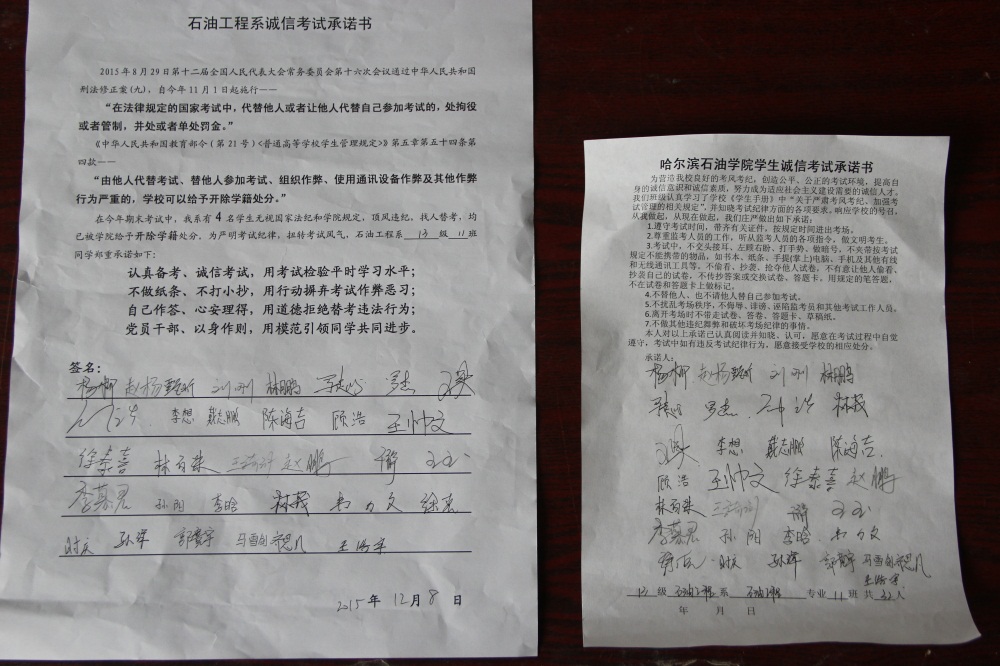 石油工程系诚信考试承诺书
2015年8月29日第十二届全国人民代表大会常务委员会第十六次会议通过中华人民共和国
刑法修正案(九)，自今年11月1日起施行——
“在法律规定的国家考试中，代替他人或者让他人代替自己参加考试的，处拘役
或者管制，并处或者单处罚金。”
《中华人民共和国教育部令（第21号）<普通高等学校学生管理规定>》第五章第五十四条第
四款——
“由他人代替考试、替他人参加考试、组织作弊、使用通讯设备作弊及其他作弊
行为严重的，学校可以给予开除学籍处分。”
在今年期末考试中，我系有4名学生无视国家法纪和学院规定，顶风违纪、找人替考，均
已被学院给予开除学籍处分。为严明考试纪律，扭转考试风气，石油工程系 13 级 11 班
同学郑重承诺如下：
认真备考、诚信考试，用考试检验平时学习水平；
不做纸条、不打小抄，用行动摒弃考试作弊恶习；
自己作答、心安理得，用道德拒绝替考违法行为；
党员干部、以身作则，用模范引领同学共同进步。
签名：
杨柳 赵杨 刘刚 林鹏
李想 戴志鹏 陈海吉 顾浩 王帅文
徐泰喜 赵鹏
李慕君 孙阳 李晗
时庆 孙辉 郭贵宇
2015年 12月 8 日
哈尔滨石油学院学生诚信考试承诺书
为营造我校良好的考风考纪，创造公平、公正的考试环境，提高自
身的诚信意识和诚信素质，努力成为适应社会主义建设需要的诚信人才，
我们班级认真学习了学校《学生手册》中“关于严肃考风考纪、加强考
试管理的相关规定”，并知晓考试纪律方面的各项要求，响应学校的号召，
从我做起，从现在做起，我们庄严做出如下承诺：
1.遵守考试时间，带齐有关证件，按规定时间进出考场。
2.尊重监考人员的工作，听从监考人员的各项指令，做文明考生。
3.考试中，不交头接耳、左顾右盼、打手势、做暗号，不夹带按考试
规定不能携带的物品，如书本、纸条、手提(掌上)电脑、手机及其他有线
和无线通讯工具等。不偷看、抄袭、抢夺他人试卷，不有意让他人偷看、
抄袭自己的试卷，不传抄答案或交换试卷、答题卡，用规定的笔答题，
不在试卷和答题卡上做标记。
4.不替他人、也不请他人替自己参加考试。
5.不扰乱考场秩序，不侮辱、诽谤、诬陷监考员和其他考试工作人员。
6.离开考场时不带走试卷、答卷、答题卡、草稿纸。
7.不做其他违纪舞弊和破坏考场纪律的事情。
本人对以上承诺已认真阅读并知晓、认可，愿意在考试过程中自觉
遵守，考试中如有违反考试纪律行为，愿意接受学校的相应处分。
承诺人：
杨柳 赵杨 刘刚 林鹏
李想 戴志鹏 陈海吉
顾浩 王帅文 徐泰喜 赵鹏
李慕君 孙阳 李晗
时庆 孙辉 郭贵宇
13 级 石油工程 系 石油工程 专业 11 班 共 32 人
年 月 日